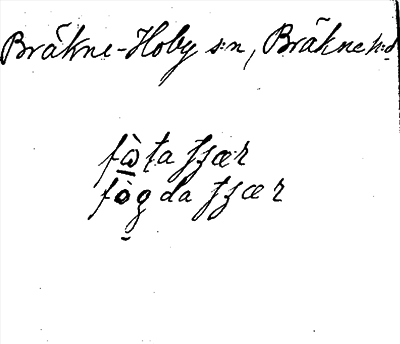 Bräkne-Hoby s:n, Bräkne h:d
fὼ̲ta fjær
fò̲gda fjær